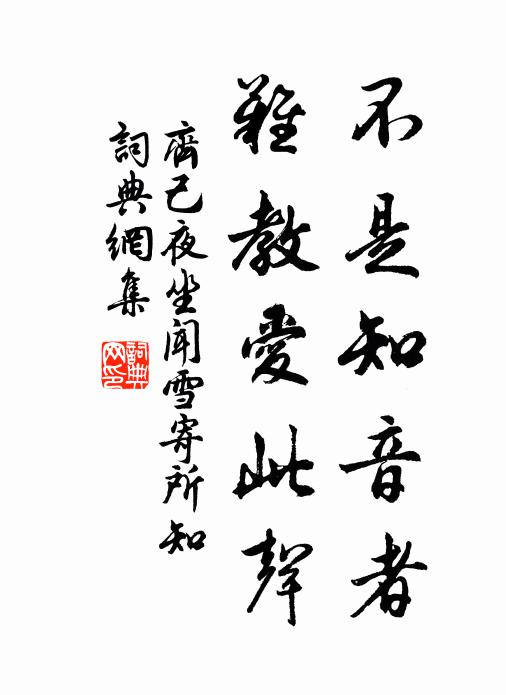 不是知音者
難教愛此聲
齊己夜坐聞雪寄所知
詞典網集
詞典
网印